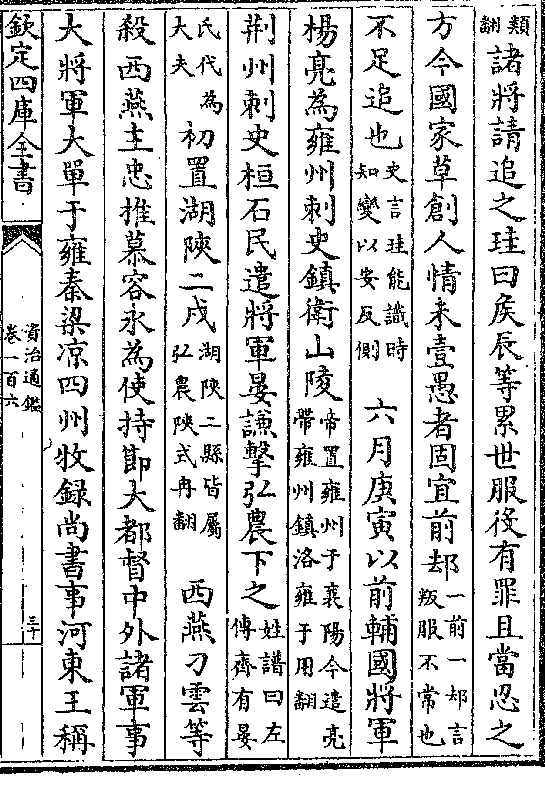 類翻諸將請追之珪曰矦辰等累世服役有罪且當忍之
方今國家草創人情未壹愚者固宜前却一前一却言叛服不常也
不足追也史言珪能識時知變以安反側 六月庚寅以前輔國將軍
楊亮為雍州刺史鎮衛山陵帝置雍州于襄陽今遣亮帶雍州鎮洛雍于用翻
荆州刺史桓石民遣將軍晏謙擊弘農下之姓譜曰左傳齊有晏
氏代為大夫初置湖陜二戍湖陜二縣皆屬弘農陜式冉翻 西燕刁雲等
殺西燕主忠推慕容永為使持節大都督中外諸軍事
大將軍大單于雍秦梁凉四州牧録尚書事河東王稱
欽定四庫全書
資治通鑑
卷一百六
三十